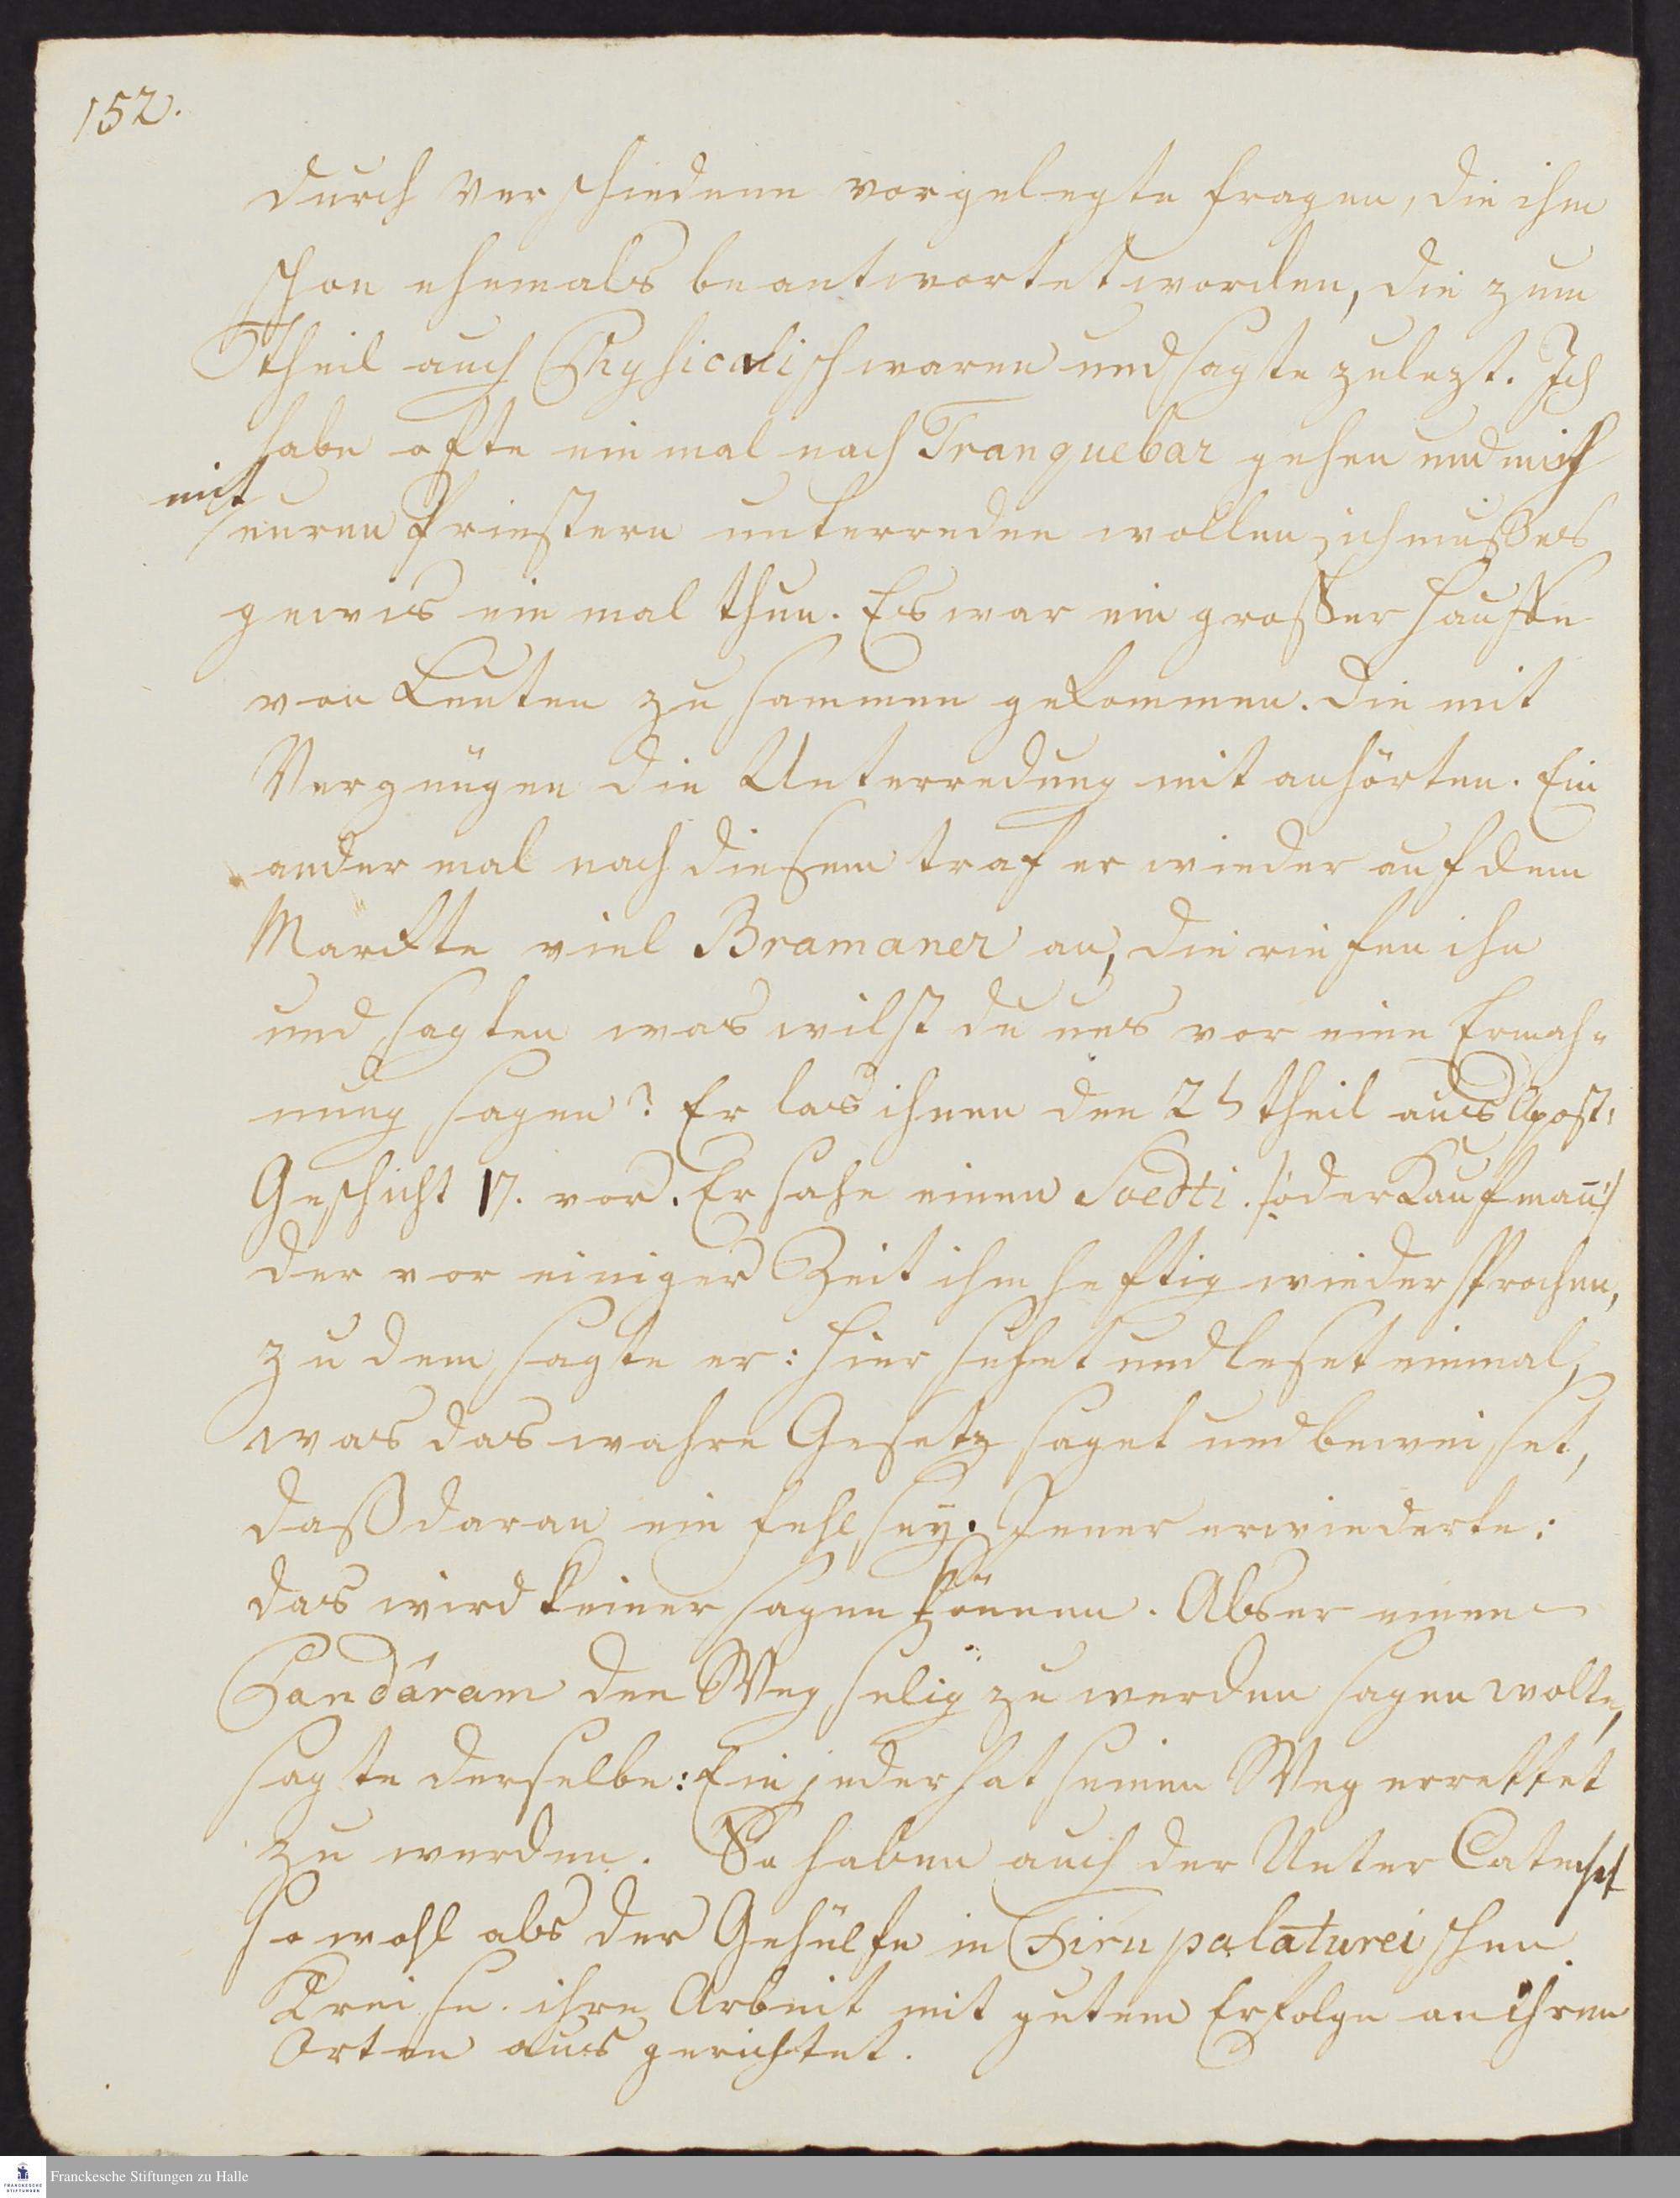 152.
durch verschiedene vorgelegte Fragen, die ihm
schon ehemals beantwortet worden, die zum
Theil auch Physicalisch waren und sagte zulezt. Ich
habe ofte einmal nach Tranquebar gehen und mich
mit
euren Priestern unterreden wollen, ich muß es
gewis ein mal thun. Es war ein großer Hauffe
von Leuten zu sammen gekommen. die mit
Vergnügen die Unterredung mit anhörten. Ein
ander mal nach diesem traf er wieder auf dem
Marckte viel Bramaner an, die riefen ihn
und sagten was wilst du uns vor eine Ermah-
nung sagen? Er las ihnen den 2t theil aus Apost:
Geschicht 17. vor. Er sahe einen Soedti. /: oder Kaufmañ :/
der vor einiger Zeit ihm heftig wiedersprochen,
zu dem sagte er: hier sehet und leset einmal,
was das wahre Gesetz saget und beweiset,
daß daran ein Fehl sey. Jener erwiederte:
das wird keiner sagen können. Als er einem
Pandáram den Weg selig zu werden sagen wolte,
sagte derselbe: Ein jeder hat seinen Weg errettet
zu werden. So haben auch der Unter Catechet
so wohl als der Gehülfe in Tirupalatureischen
Kreise. ihre Arbeit mit gutem Erfolge an ihren
Orten aus gerichtet.
Franckesche Stiftungen zu Halle
FRANCKESCHE
STIFTUNGEN